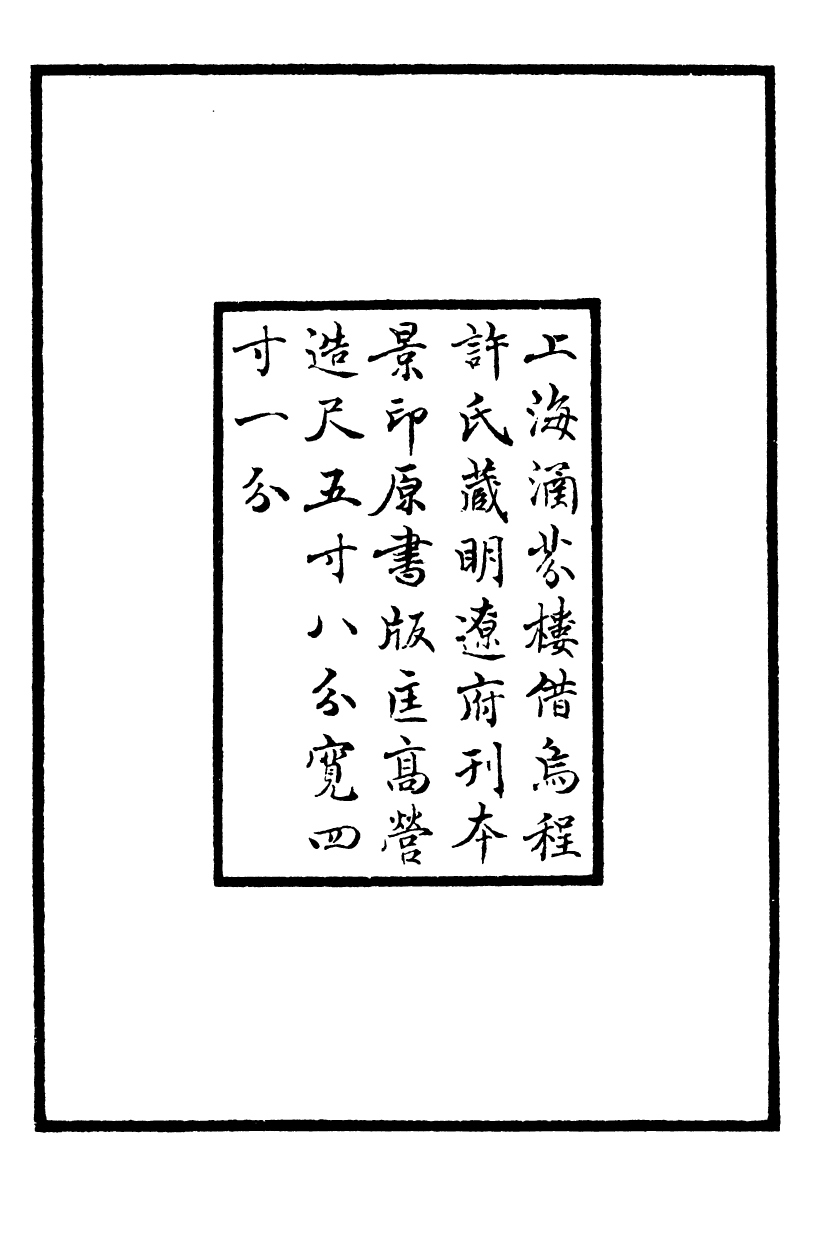 上海涵芬樓借烏程
許氏藏明遼府刊本
景印原書版匡高營
造尺五寸八分寬四
寸一分